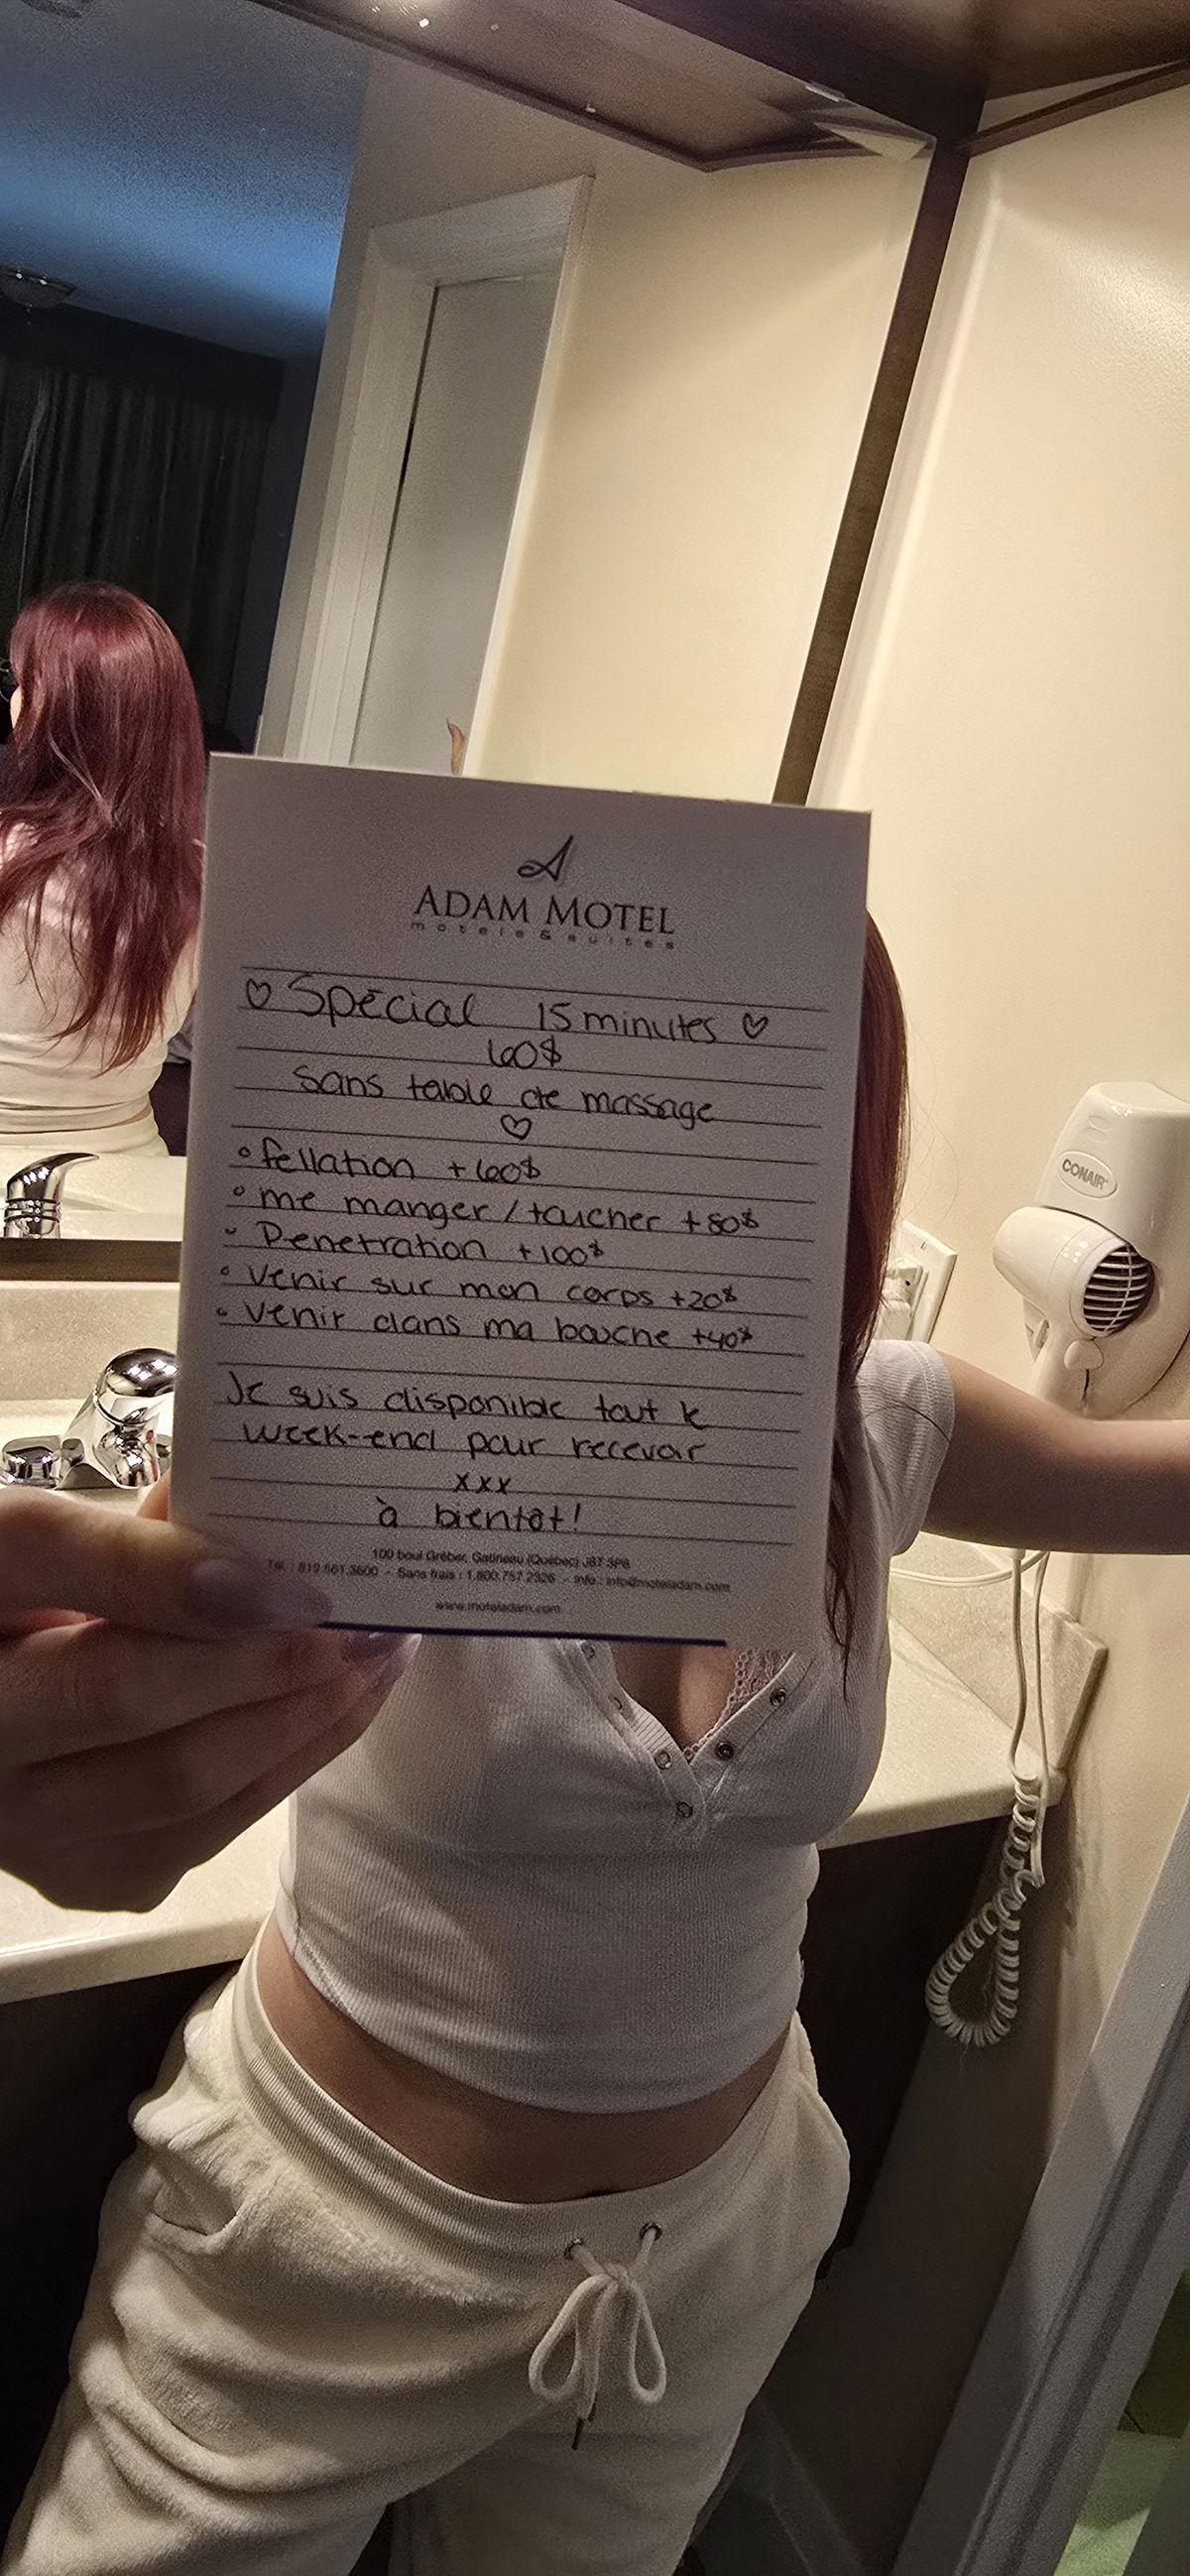 ADAM MOTEL
motels & suites
♡ Spécial 15 minutes ♡
60$
Sans table de massage
♡
• fellation +60$
• me manger/toucher +80$
• Penetration +100$
• Venir sur mon corps +20$
• Venir dans ma bouche +40$
Je suis disponible tout le
week-end pour recevoir
xxx
à bientôt!
100 boul Gréber, Gatineau (Québec) J8T 3P8
Tél. : 819.561.3600 - Sans frais : 1.800.757.2326 - Info : info@moteladam.com
www.moteladam.com
CONAIR